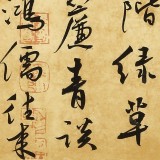 階綠草
簾青談
鴻儒往來